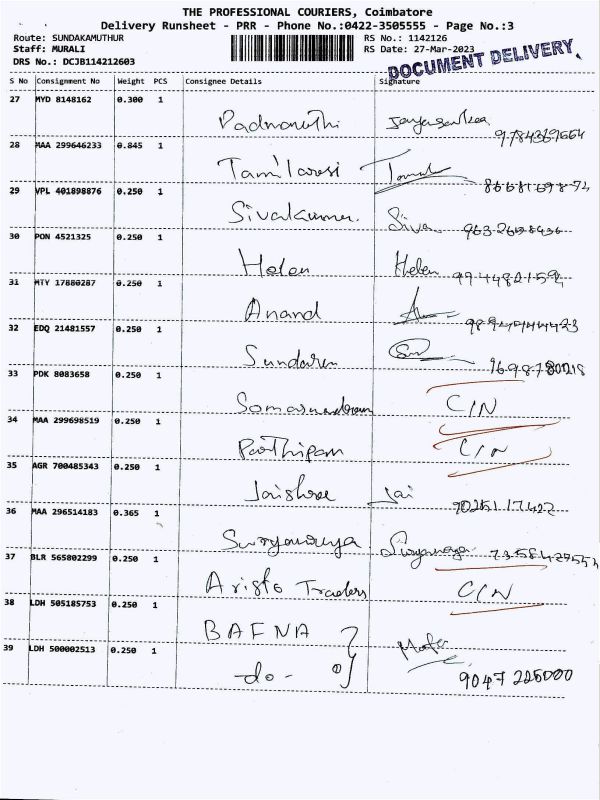 THE PROFESSIONAL COURIERS, Coimbatore
Delivery Runsheet - PRR - Phone No.:0422-3505555 - Page No.:3
Route: SUNDAKAMUTHUR RS No.: 1142126
Staff: MURALI RS Date: 27-Mar-2023
DRS No.: DCJB114212603
DOCUMENT DELIVERY
S No Consignment No Weight PCS Consignee Details Signature
27 MYD 8148162 0.300 1
28 MAA 299646233 0.845 1
Tamilarasi
29 VPL 401898876 0.250 1
Sivakumar. Siva
30 PON 4521325 0.250 1
Helen Helen 9944821592
31 MTY 17880287 0.250 1
Anand
32 EDQ 21481557 0.250 1
Sundaren
33 PDK 8083658 0.250 1
Somasundaram C/N
34 MAA 299698519 0.250 1
Parthipan C/N
35 AGR 700485343 0.250 1
Jaishree Jai
36 MAA 296514183 0.365 1
37 BLR 565802299 0.250 1
Aristo Traders C/N
38 LDH 505185753 0.250 1
BAFNA
39 LDH 500002513 0.250 1
-do- 9047 226000